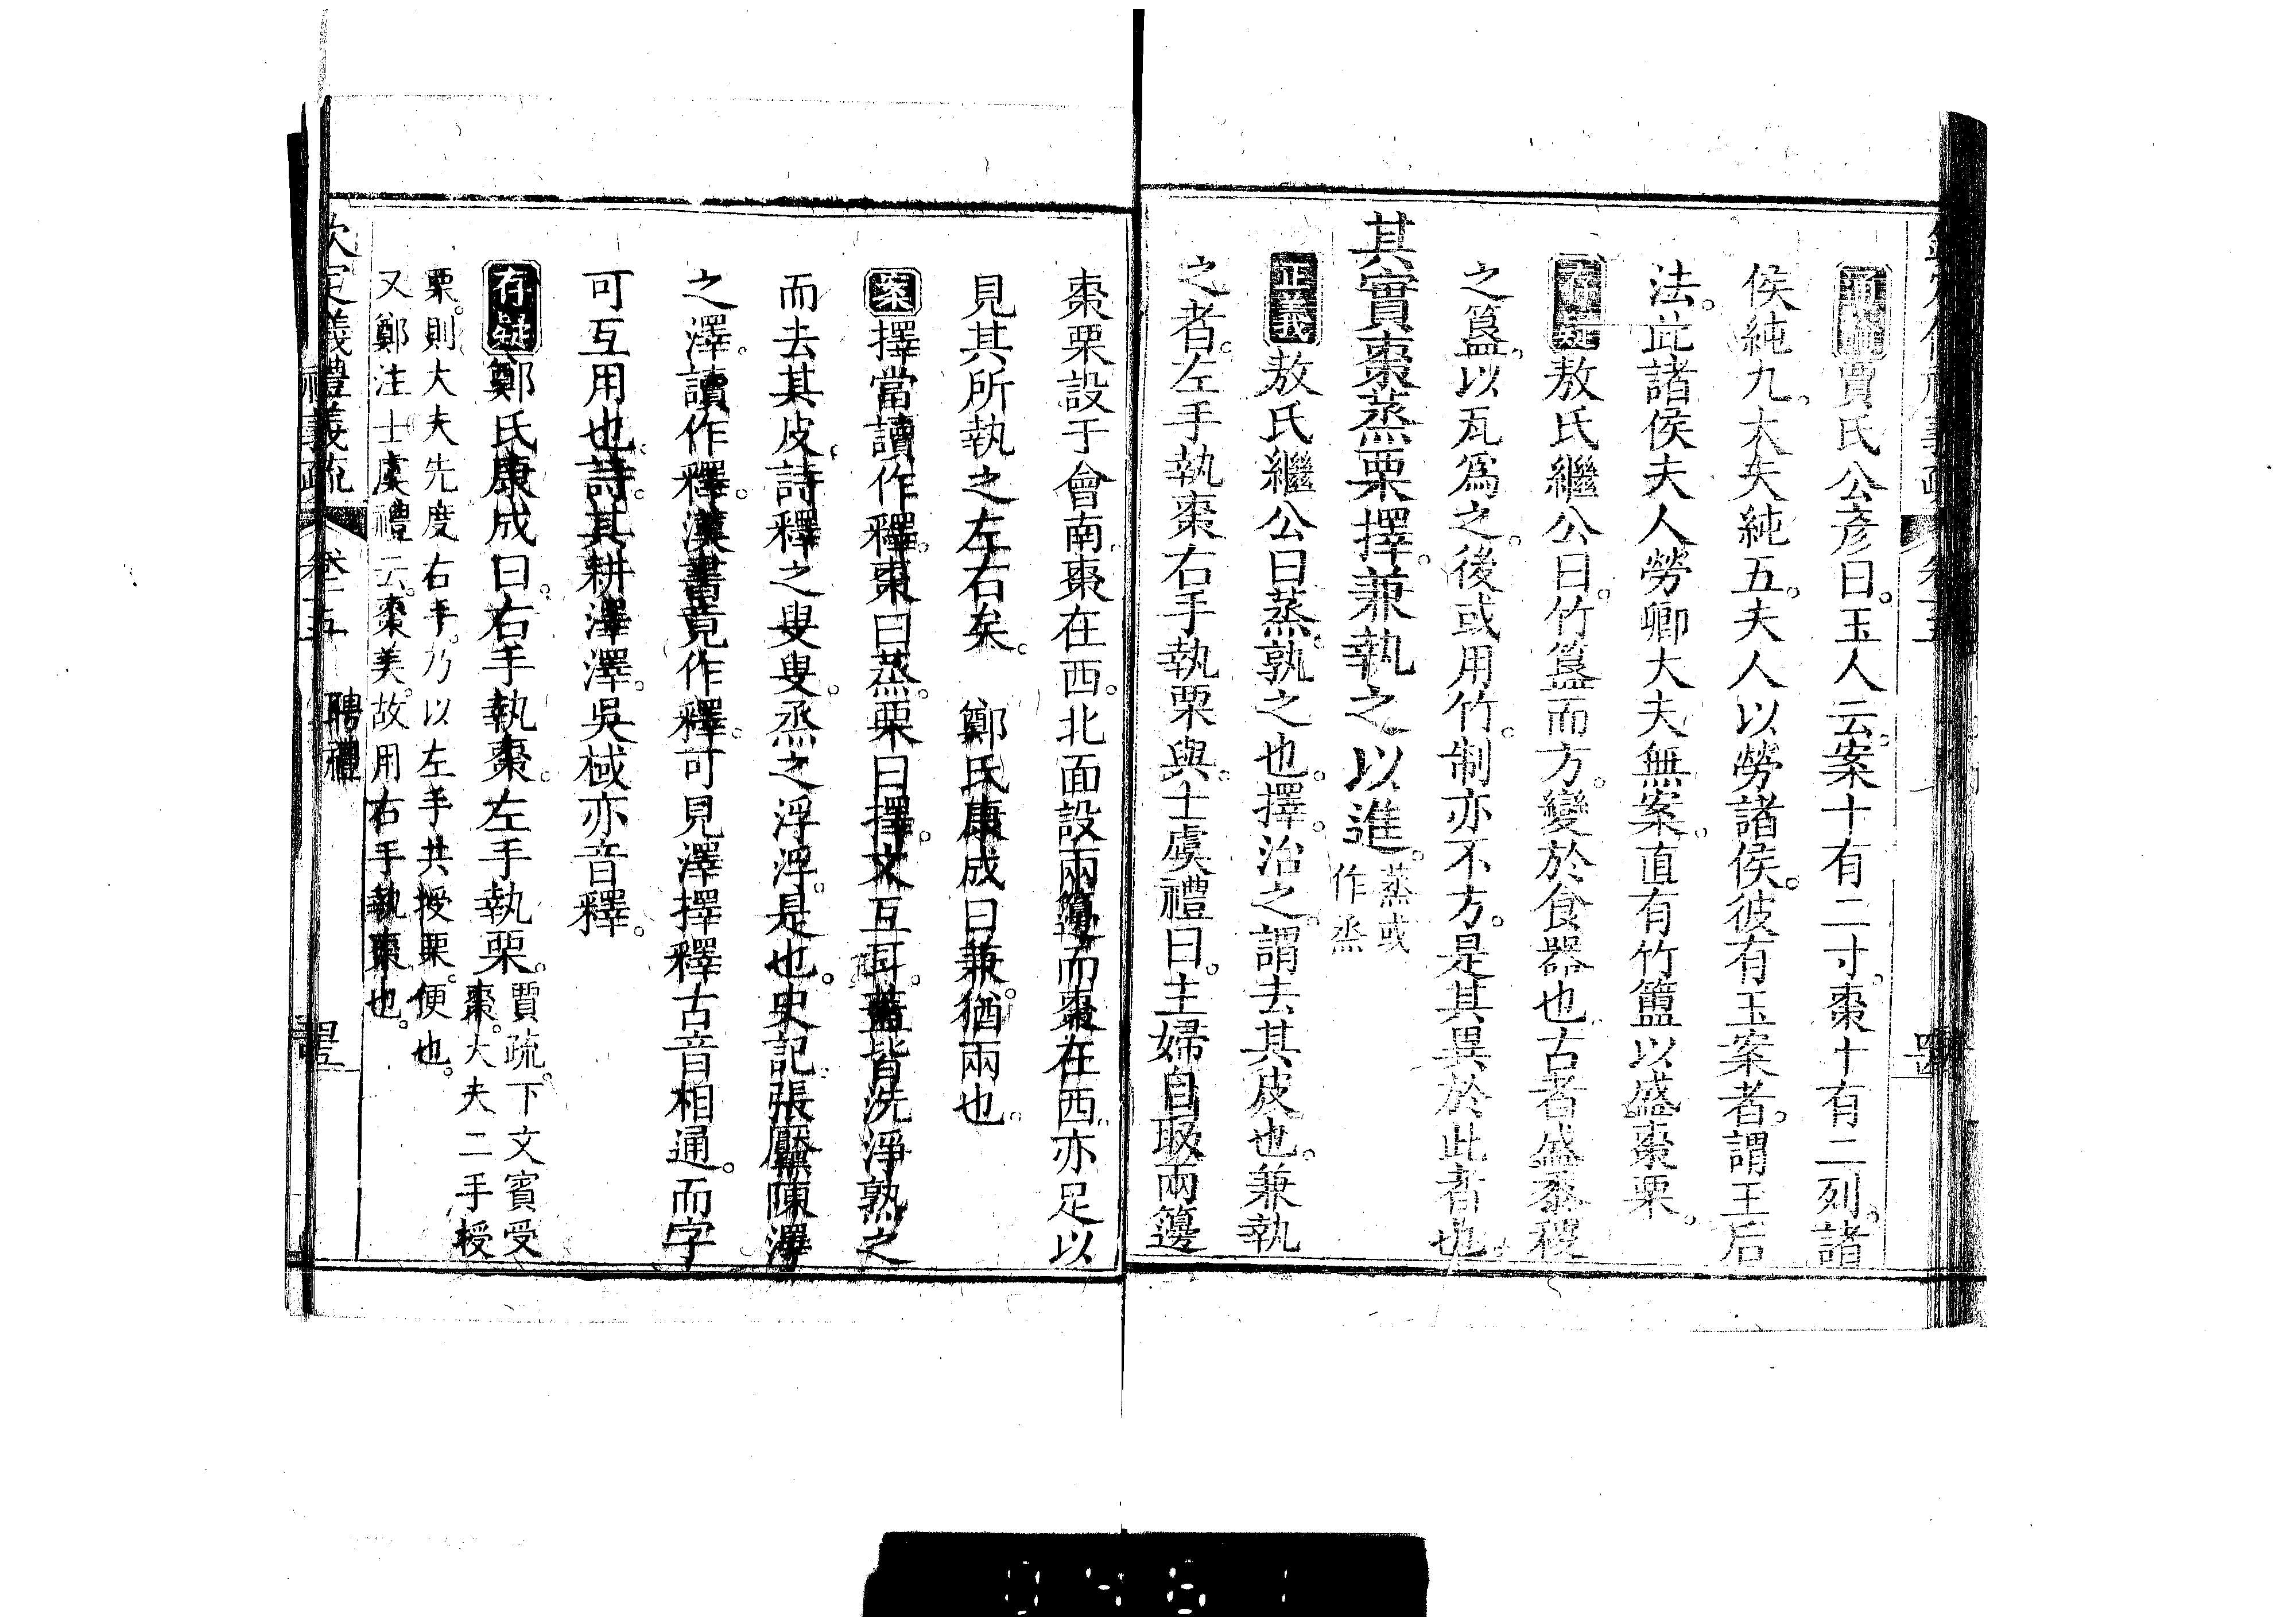 通論賈氏公彦曰。玉人云。案十有二寸。棗十有二列。諸
侯純九。大夫純五。夫人以勞諸侯。彼有玉案者。謂王后
法。此諸侯夫人勞卿大夫無案。直有竹簠以盛棗栗。
存疑敖氏繼公曰。竹簋而方。變於食器也古者盛黍稷
之簋。以瓦爲之。後或用竹。制亦不方。是其異於此者也。
其實棗蒸栗擇。兼執之以進。蒸或
作烝
正義敖氏繼公曰蒸。孰之也。擇。治之。謂去其皮也。兼執
之者。左手執棗右手執栗與。士虞禮曰。主婦自取兩籩
棗栗設于會南。棗在西。北面設兩籩而棗在西。亦足以
見其所執之左右矣。 鄭氏康成曰兼。猶兩也。
案擇當讀作釋。棗曰蒸。栗曰擇。文互耳。蓋皆洗淨熟之
而去其皮。詩釋之叟叟。烝之浮浮。是也。史記張黶陳澤
之澤。讀作釋。漢書竟作釋。可見澤擇釋古音相通。而字
可互用也。詩。其耕澤澤。吳棫亦音釋。
存疑鄭氏康成曰。右手執棗。左手執栗。賈疏。下文賓受
棗。大夫二手授
栗。則大夫先度右手。乃以左手共授栗。便也。
又鄭注士虞禮云。棗美。故用右手執棗也。
欽定儀禮義疏 卷十五 聘禮
禮義疏